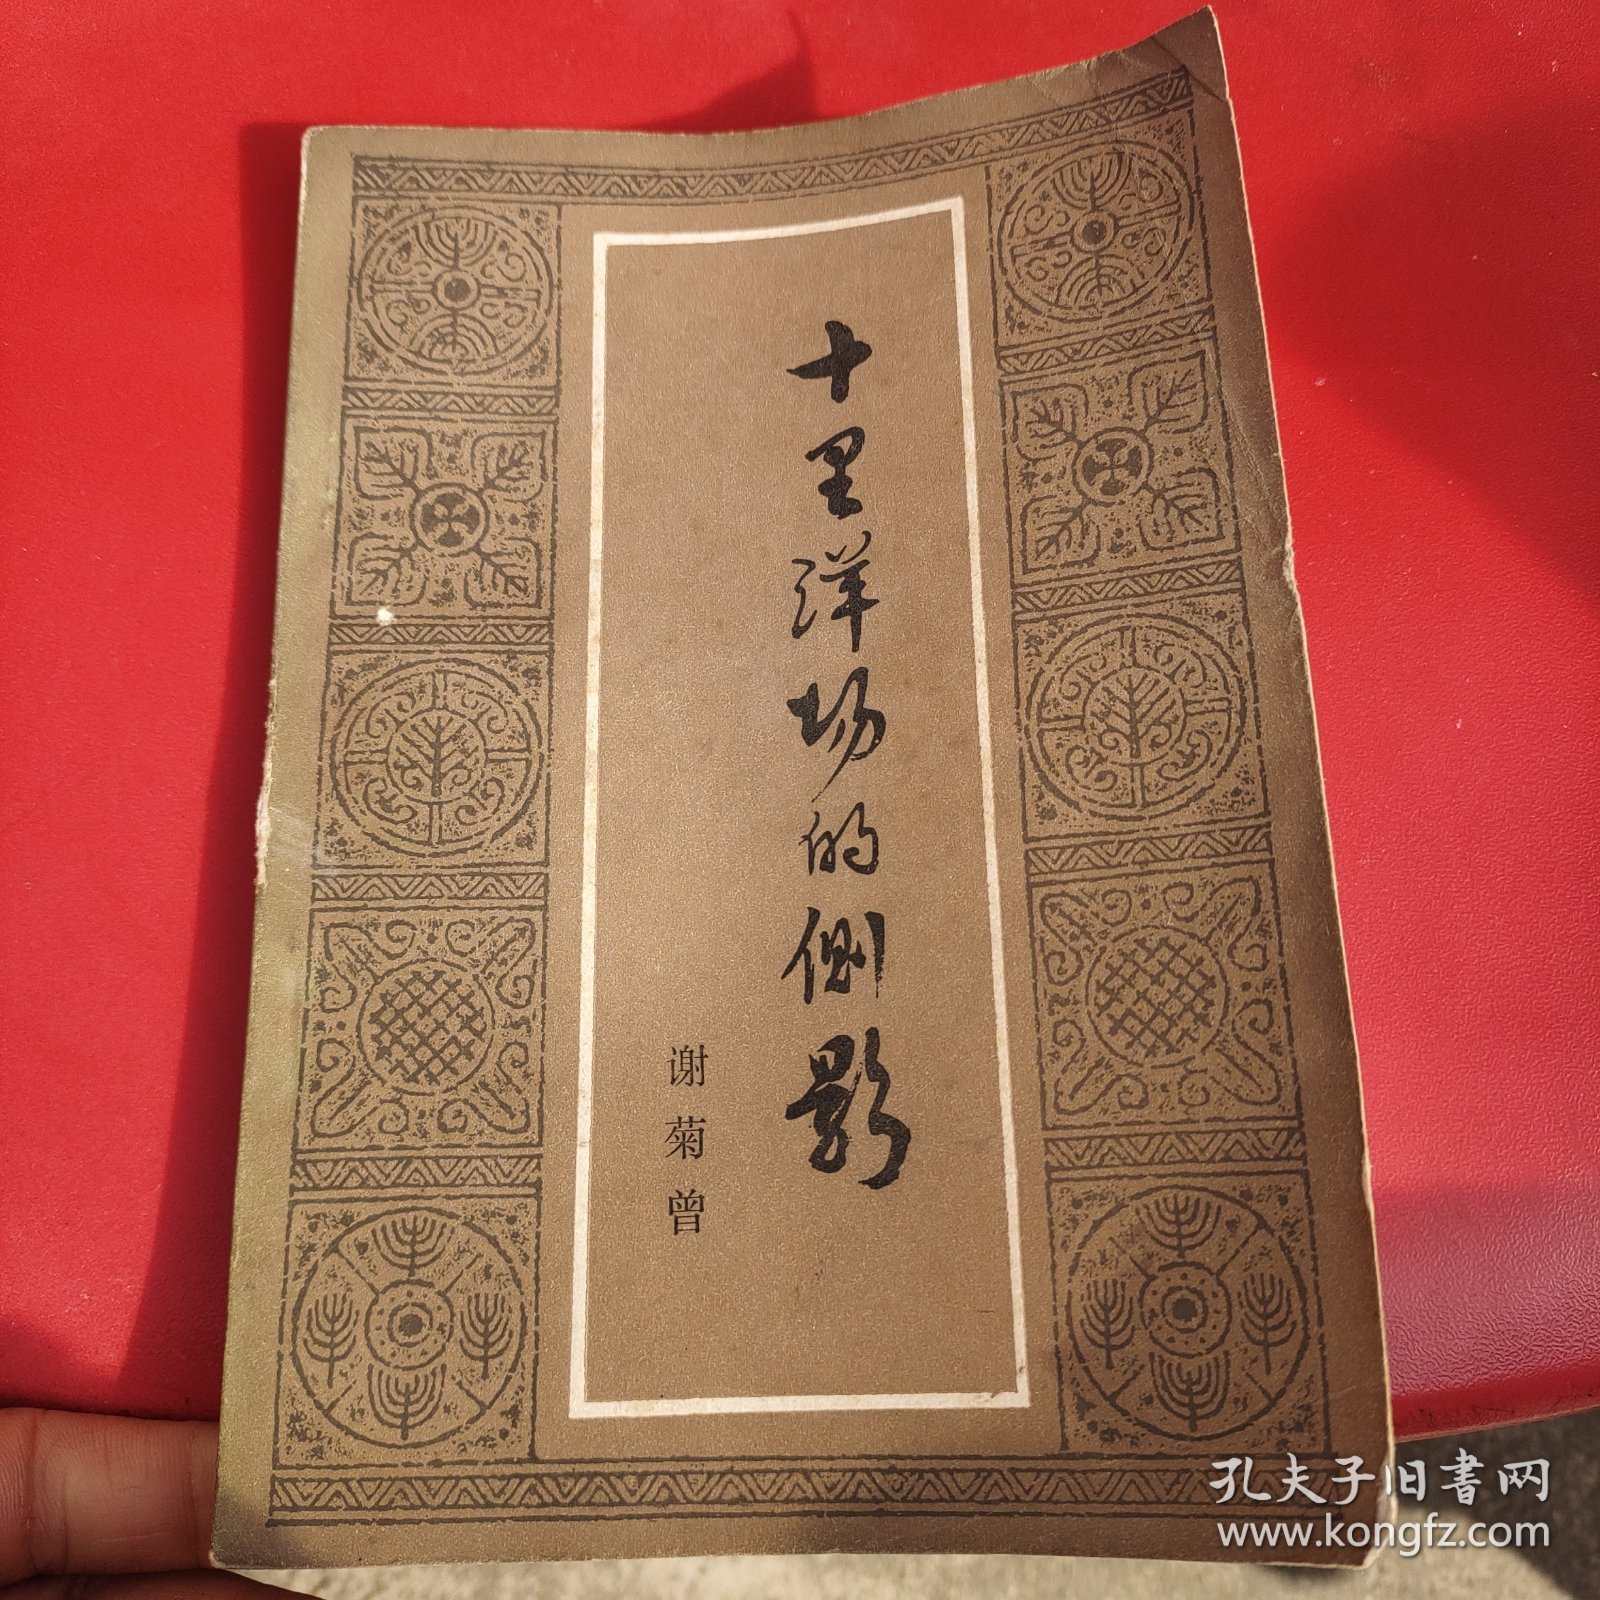 十里洋场的侧影
谢菊曾
孔夫子旧書网
www.kongfz.com